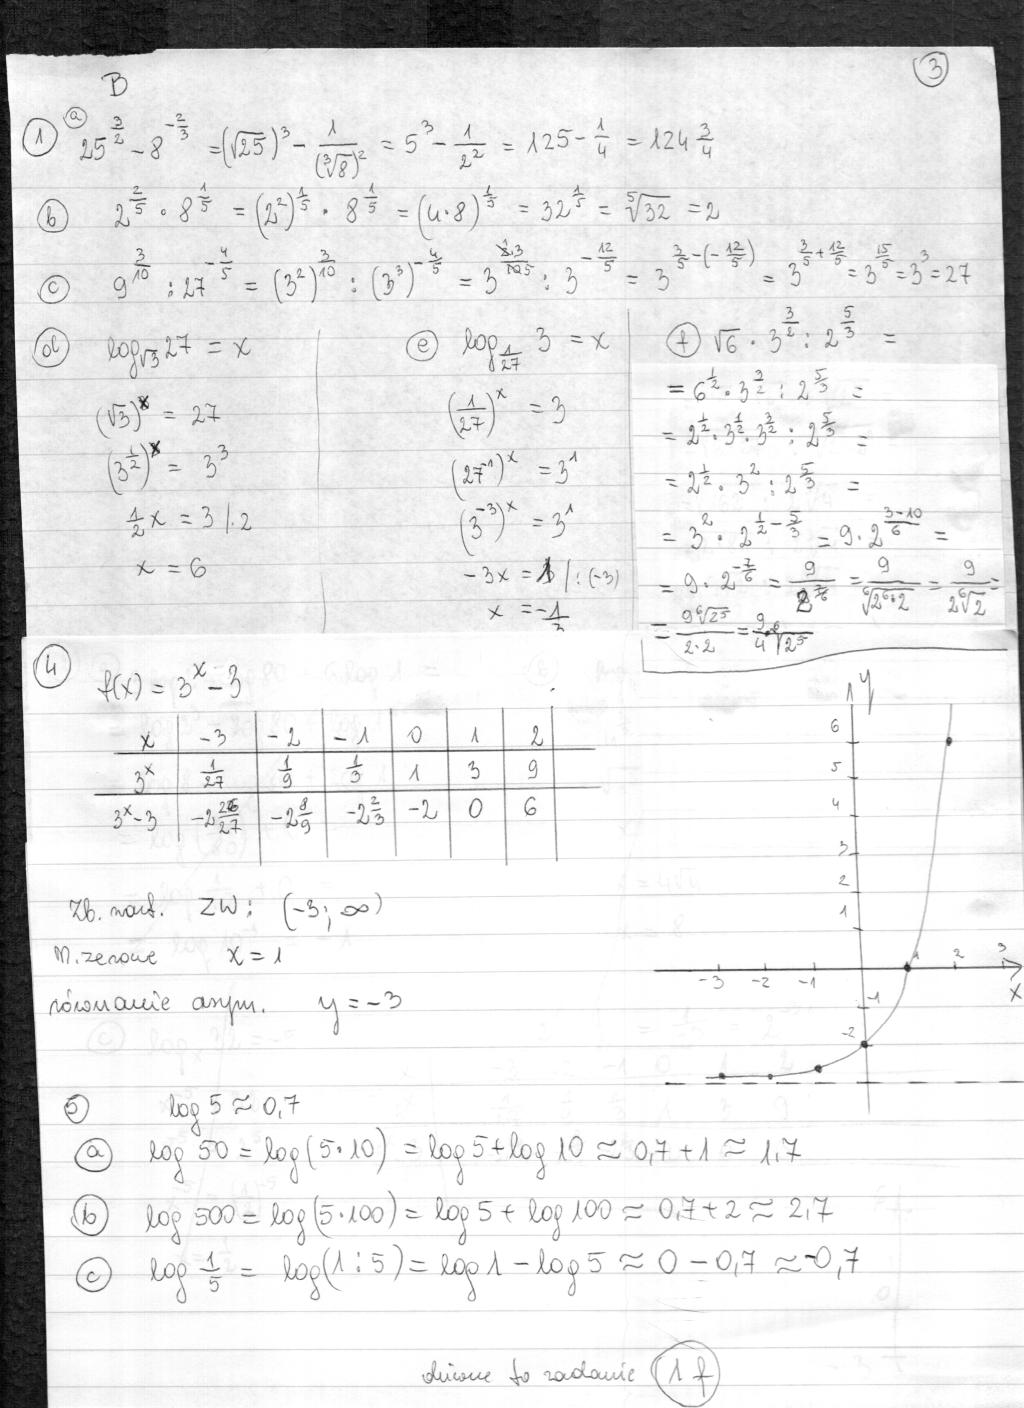 B
③
① ⓐ 25^(3/2) - 8^(-2/3) = (√25)³ - 1/(∛8)² = 5³ - 1/2² = 125 - 1/4 = 124 3/4
ⓑ 2^(2/5) · 8^(1/5) = (2²)^(1/5) · 8^(1/5) = (4·8)^(1/5) = 32^(1/5) = ⁵√32 = 2
ⓒ 9^(3/10) : 27^(-4/5) = (3²)^(3/10) : (3³)^(-4/5) = 3^(3/5) : 3^(-12/5) = 3^(3/5-(-12/5)) = 3^(3/5+12/5) = 3^(15/5) = 3³ = 27
ⓓ log_√3 27 = x
(√3)^x = 27
(3^(1/2))^x = 3³
1/2 x = 3 |·2
x = 6
ⓔ log_(1/27) 3 = x
(1/27)^x = 3
(27⁻¹)^x = 3¹
(3⁻³)^x = 3¹
-3x = 1 |:(-3)
x = -1/3
ⓕ √6 · 3^(3/2) : 2^(5/3) =
= 6^(1/2) · 3^(3/2) : 2^(5/3) =
= 2^(1/2) · 3^(1/2) · 3^(3/2) : 2^(5/3) =
= 2^(1/2) · 3² : 2^(5/3) =
= 3² · 2^(1/2 - 5/3) = 9 · 2^((3-10)/6) =
= 9 · 2^(-7/6) = 9/2^(7/6) = 9/⁶√(2⁶·2) = 9/(2⁶√2) =
= 9⁶√2⁵/(2·2) = 9/4 · ⁶√2⁵
④ f(x) = 3^x - 3
x | -3 | -2 | -1 | 0 | 1 | 2
3^x | 1/27 | 1/9 | 1/3 | 1 | 3 | 9
3^x-3 | -2 26/27 | -2 8/9 | -2 2/3 | -2 | 0 | 6
Zb. wart. ZW: (-3; ∞)
M. zerowe x = 1
równanie asym. y = -3
y
6
5
4
3
2
1
-3 -2 -1 1 2 3
x
-1
-2
5 log 5 ≈ 0,7
ⓐ log 50 = log(5·10) = log 5 + log 10 ≈ 0,7 + 1 ≈ 1,7
ⓑ log 500 = log(5·100) = log 5 + log 100 ≈ 0,7 + 2 ≈ 2,7
ⓒ log 1/5 = log(1:5) = log 1 - log 5 ≈ 0 - 0,7 ≈ -0,7
dziwne to zadanie 1 f